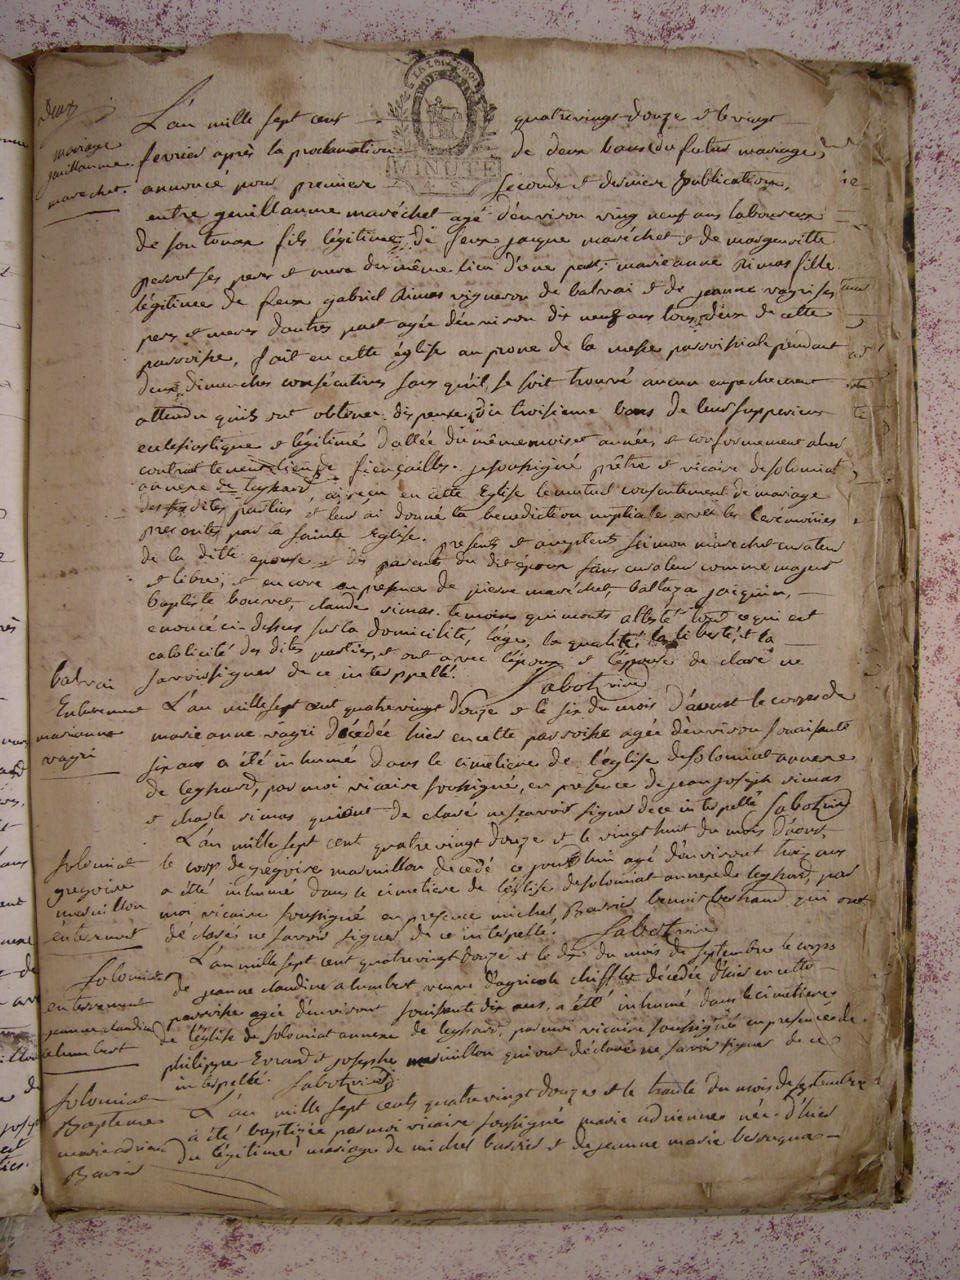 deux
L'an mille sept cent quatrevingt douze et le vingt
mariage
guillaume
marechet.
fevrier après la proclamation de deux bans du futur mariage,
annoncé pour premiere seconde et derniere publication,
MINUTE
4. S.
entre guillaume maréchet agé d'environ ving neuf ans laboureur
de son fils légitime de feux jaque maréchet et de margueritte
ses pere et mere du même lieu d'une part; marie anne simas fille
légitime de feux gabriel simas vigneron de balvai et de jeanne vagri ses
pere et mere d'autre part agée d'environ dix neuf ans tous deux de cette
parroisse, fait en cette église au prone de la messe parroissiale pendant
deux dimenches consécutives sans qu'il se soit trouvé aucun empechement
attendu qu'ils ont obtenu dispense du troisieme bans de leur supperieur
eclesiastique et légitimé du même mois et année, et conformement
contrat tenent lieu de fiençailles. je soussigné prêtre et vicaire de solomiat
annexe de leyssard, ai reçu en cette Eglise le mutuel consentement de mariage
des dites parties et leur ai donné la benediction nuptiale avec les ceremonies
prescrites par la sainte Eglise. presents et simon maréchet curateur
de la ditte epouse et des parents du dit époux sans curateur comme majeur
et libre; et encore en presence de pierre maréchet, baltaza jaiquin,
baptiste bouvret, claude simas. temoins qui m'onts attesté tout ce qui est
enoncé ci-dessus sur la domicilité, l'age, la qualité, la liberté, et la
catolicité des dites parties, et ont avec l'époux et l'épouse de claré ne
savoir signer de ce interppellé. Sabot vire
balvai
Enterrement
marianne
vagri
L'an mille sept cent quatre vingt douze et le six du mois d'aoust le corps de
marie anne vagri décédée hier en cette parroisse agée d'environ soixante
six ans a été inhumé dans le cimetiere de l'église de solomiat annexe
de leyssard, par moi vicaire soussigné, en presence de jean joseph simas
et charle simas qui ont de claré ne savoir signer de ce interpellé Sabot vire
L'an mille sept cent quatre vingt douze et le vingt huit du mois d'aoust,
solomiat
gregoire
masuillon
enterrement
le corp de gregoire masuillon decedé ce jourd'hui agé d'environt trois ans
a été inhumé dans le cimetiere de l'église de solomiat annexe de leyssard, par
moi vicaire soussigné en presence michel, Bavris benoit bertrand qui ont
de claré ne savoir signer de ce interpellé. Sabot vire
L'an mille sept cent quatre vingt douze et le dix du mois de septembre le corps
solomiat
enterrement
jeanne claudine
alumbert
de jeanne claudine alumbert veuve d'agricole chifflet décédée d'hier en cette
parroisse agée d'environt soixante dix ans, a été inhumé dans le cimetiere
de l'église de solomiat annexe de leyssard, par moi vicaire soussigné en presence de
philippe Evrard et josephe masuillon qui ont déclaré ne savoir signer de ce
interpellé. Sabot vire
solomiat
Bapteme
marie adrienne
Bavris
L'an mille sept cents quatre vingt douze et le trente du mois de septembre
a été baptizée par moi vicaire soussigné marie adrienne née d'hier
du légitime mariage de michel bavris et de jeanne marie